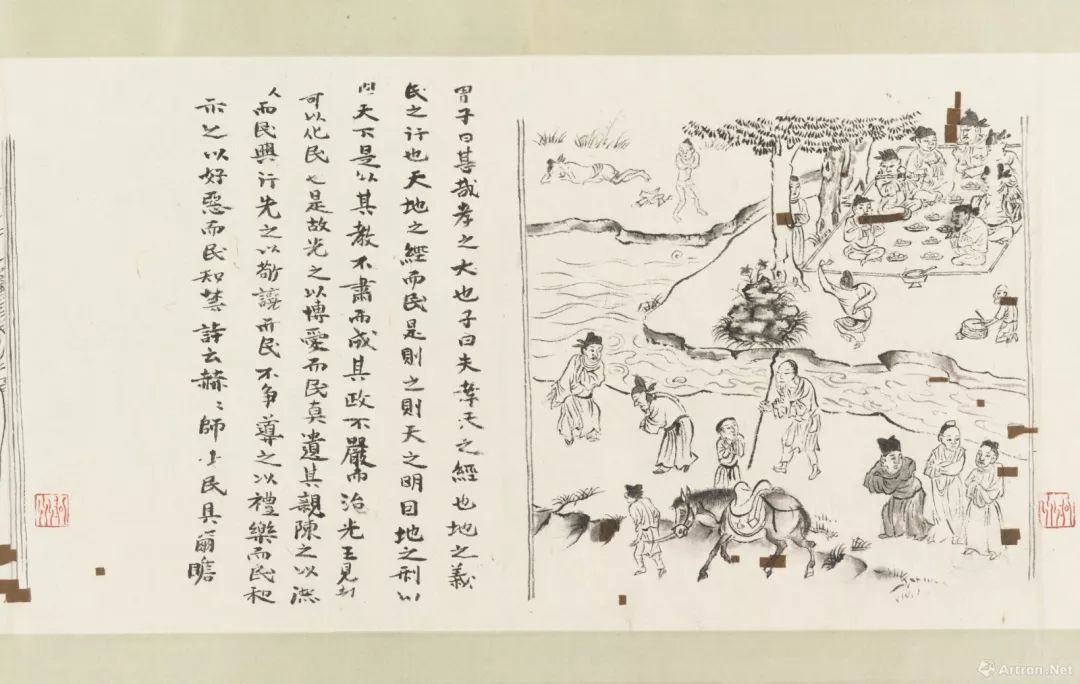 子曰甚哉孝之大也子曰夫孝天之經也地之義
民之行也天地之經而民是則之則天之明目地之刑以
天下是以其教不肅而成其政不嚴而治先王見
可以化民也是故先之以博愛而民莫遺其親陳之以
而民興行先之以敬讓而民不爭導之以禮樂而民和
示之以好惡而民知禁詩云赫〻師尹民具爾瞻
Artron.Net